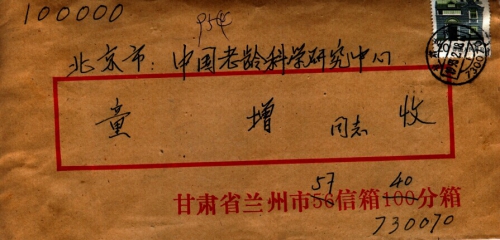 100000
北京市：中国老龄科学研究中心
童增 同志 收
57 40
甘肃省兰州市56信箱100分箱
730070